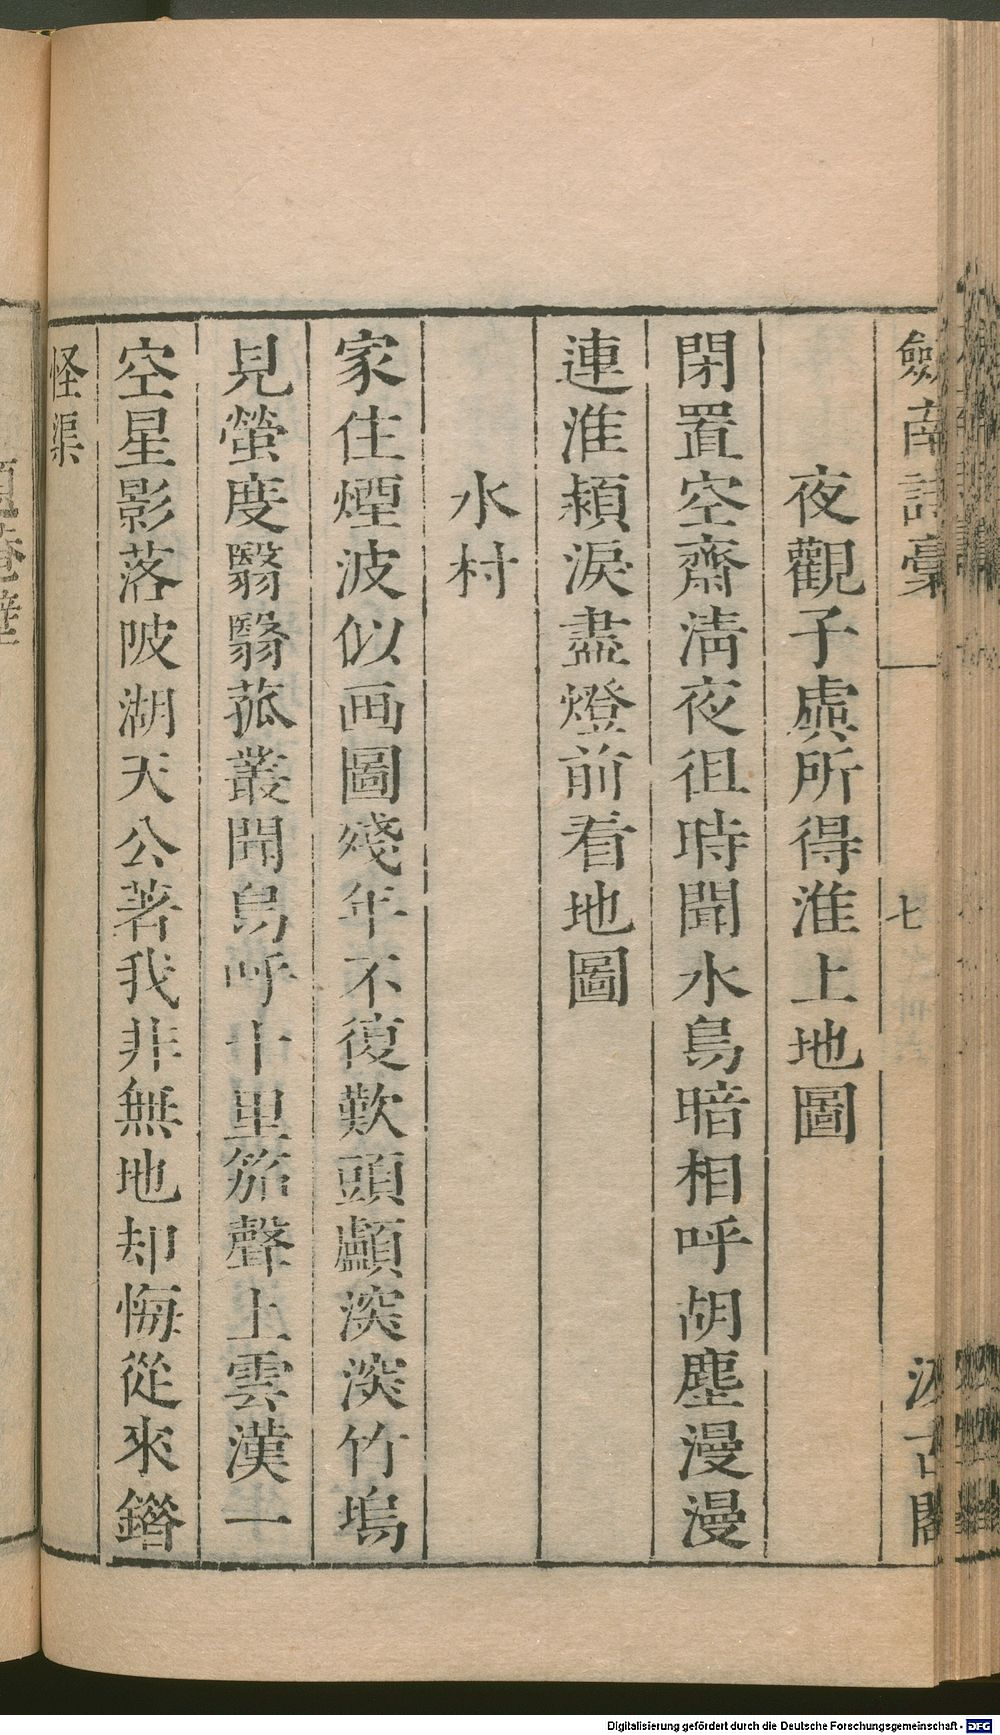 劍南詩稾 七 汲古閣
夜觀子虡所得淮上地圖
閉置空齋淸夜徂時聞水鳥暗相呼胡塵漫漫
連淮潁淚盡燈前看地圖
水村
家住煙波似画圖殘年不復歎頭顱深深竹塢
見螢度翳翳菰叢聞鳥呼十里笳聲上雲漢一
空星影落陂湖天公著我非無地却悔從來鐕
怪渠
Digitalisierung gefördert durch die Deutsche Forschungsgemeinschaft - DFG